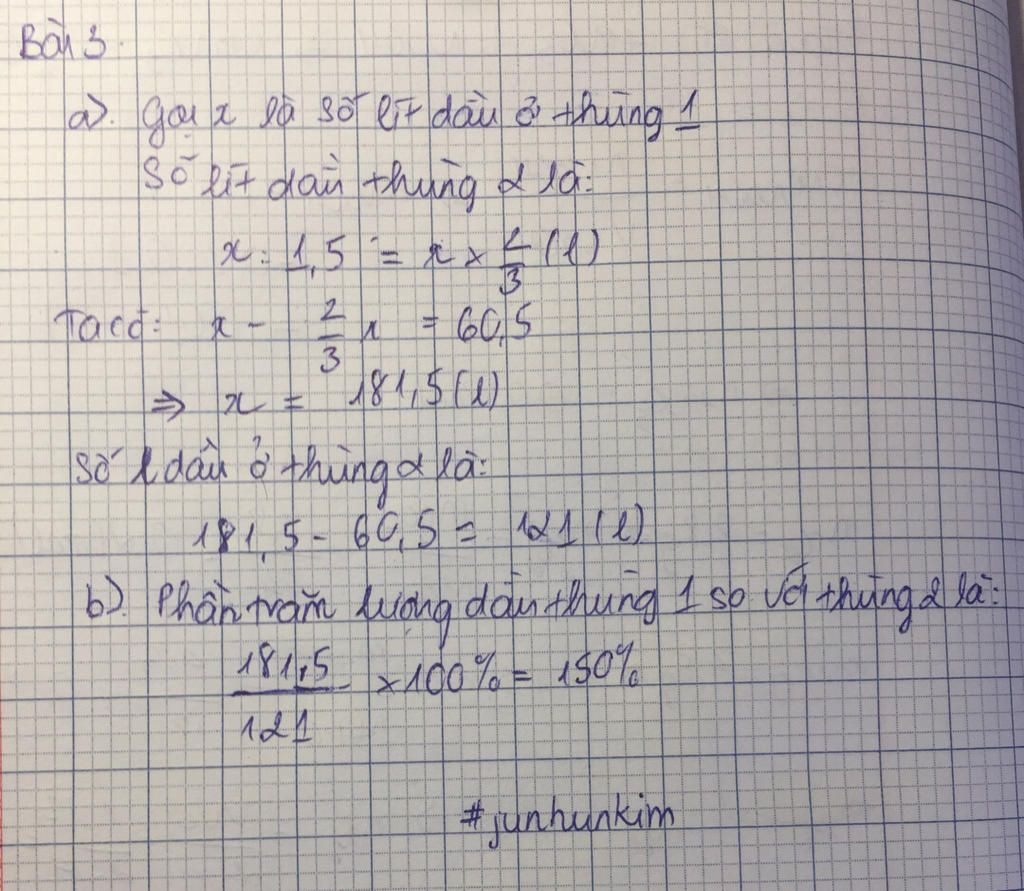 Bài 3.
a). Gọi x là số lít dầu ở thùng 1
Số lít dầu thùng 2 là:
x : 1,5 = x × 2/3 (l)
Ta có: x - 2/3 x = 60,5
⇒ x = 181,5 (l)
Số l dầu ở thùng 2 là:
181,5 - 60,5 = 121 (l)
b). Phần trăm lượng dầu thùng 1 so với thùng 2 là:
181,5/121 × 100% = 150%
#junhunkim